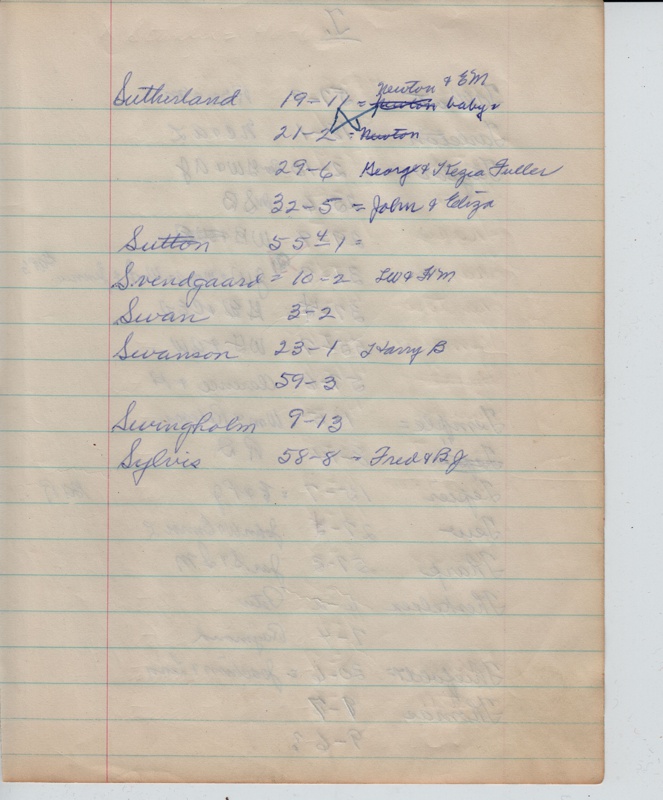 Newton & EM
Sutherland 19-11 = Newton baby &
21-2 = Newton
29-6 George & Kezia Fuller
32-5 = John & Eliza
Sutton 55-1 =
Svendgaard = 10-2 & HM
Swan 3-2
Swanson 23-1 Harry B
59-3
Swingholm 9-13
Sylvis 58-8 - Fred & BJ